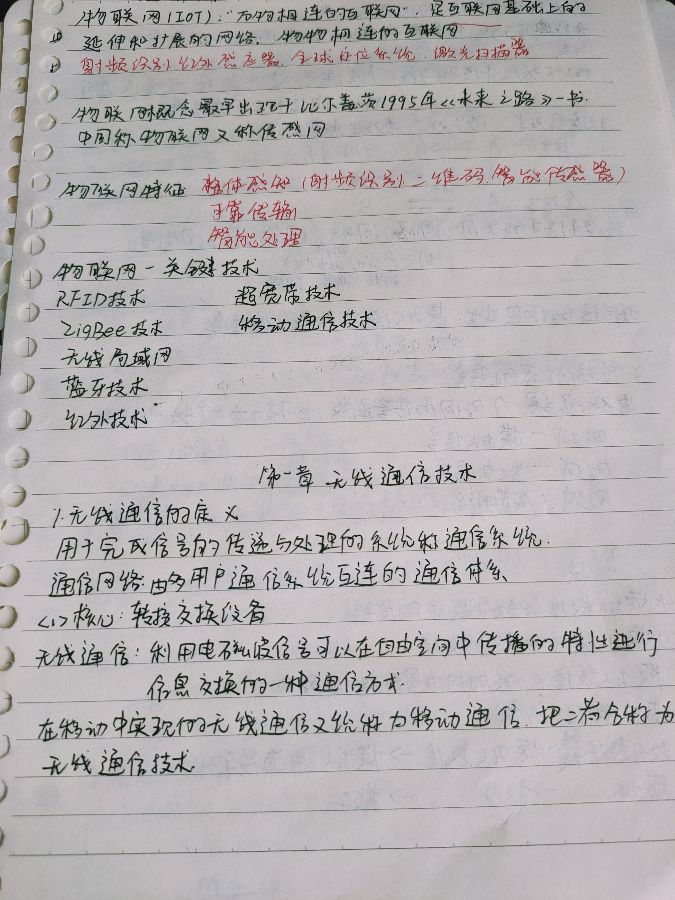 物联网(IOT):"万物相连的互联网",是互联网基础上的
延伸和扩展的网络. 物物相连的互联网
射频识别 红外感应器. 全球定位系统. 激光扫描器
物联网概念最早出现于比尔盖茨1995年《未来之路》一书.
中国称物联网又称传感网
物联网特征 整体感知(射频识别.二维码.智能传感器)
可靠传输
智能处理
物联网一关键技术
RFID技术 超宽带技术
ZigBee技术 移动通信技术
无线局域网
蓝牙技术
红外技术
第一章 无线通信技术
1.无线通信的定义
用于完成信号的传递与处理的系统称通信系统.
通信网络:由多用户通信系统互连的通信体系
<1>核心:转接交换设备
无线通信:利用电磁波信号可以在自由空间中传播的特性进行
信息交换的一种通信方式.
在移动中实现的无线通信又统称为移动通信.把二者合称为
无线通信技术